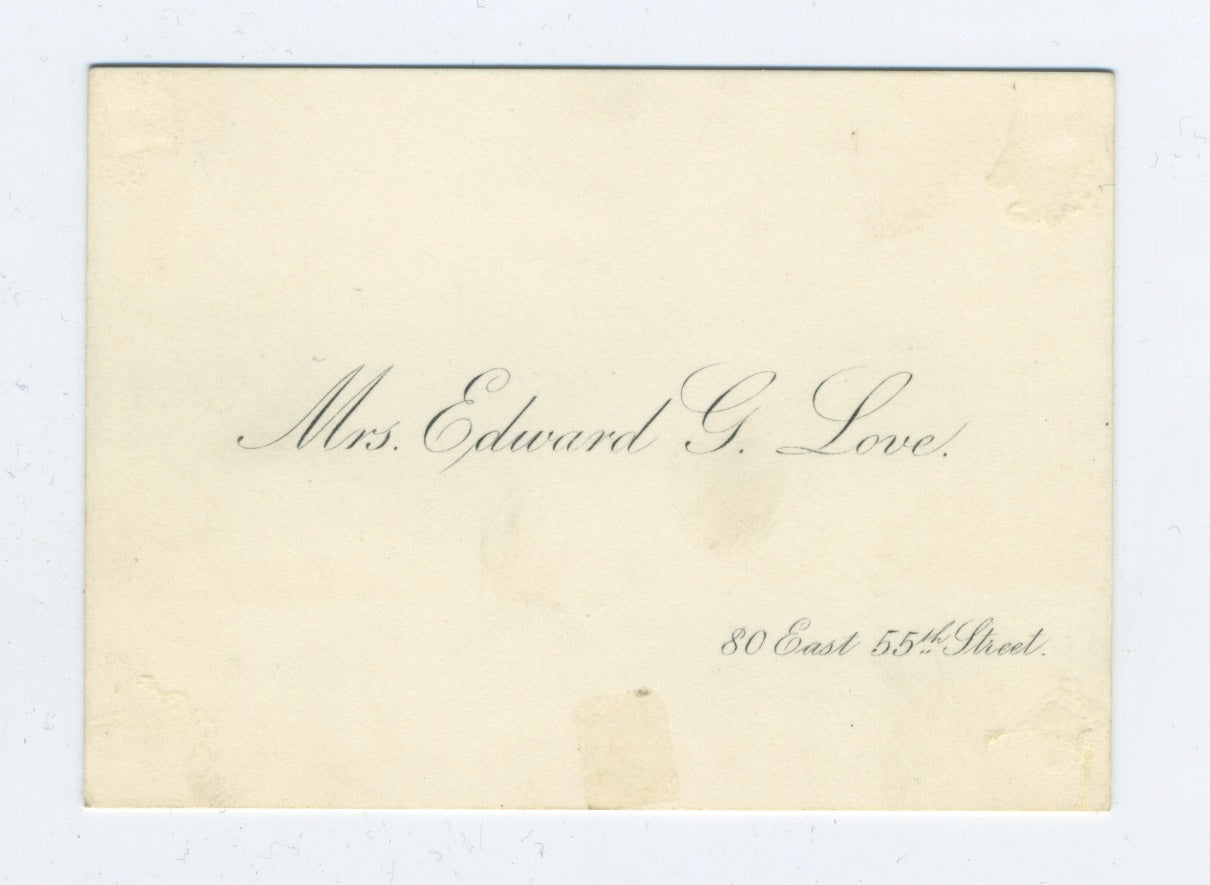 Mrs. Edward G. Love.
80 East 55th Street.